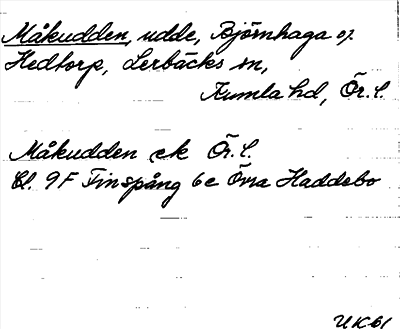 Måkudden, udde, Björnhaga o.
Hedtorp, Lerbäcks sn,
Kumla hd, Ör. l.
Måkudden ek Ör. l.
Bl. 9F Finspång 6c Övra Haddebo
UK61